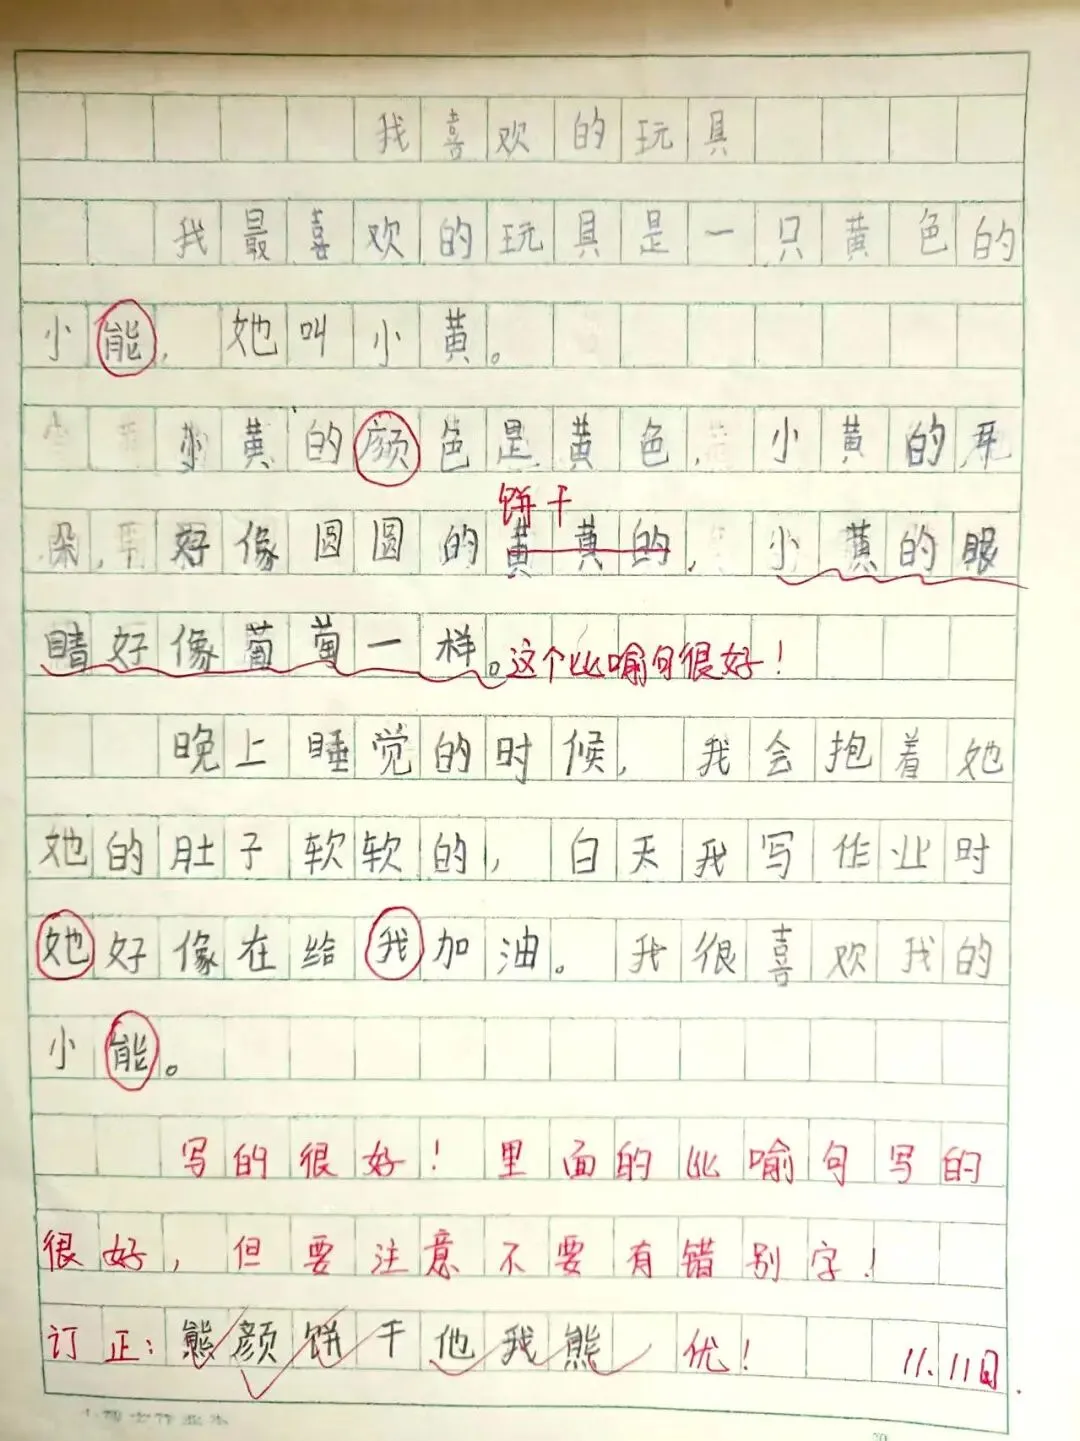 我喜欢的玩具
我最喜欢的玩具是一只黄色的
小能，她叫小黄。
小黄的颜色是黄色，小黄的耳
饼干
朵，好像圆圆的黄黄的，小黄的眼
睛好像葡萄一样。这个比喻句很好！
晚上睡觉的时候，我会抱着她
她的肚子软软的，白天我写作业时
她好像在给我加油。我很喜欢我的
小能。
写的很好！里面的比喻句写的
很好，但要注意不要有错别字！
订正：熊颜饼干他我熊 优！ 11.11日
20